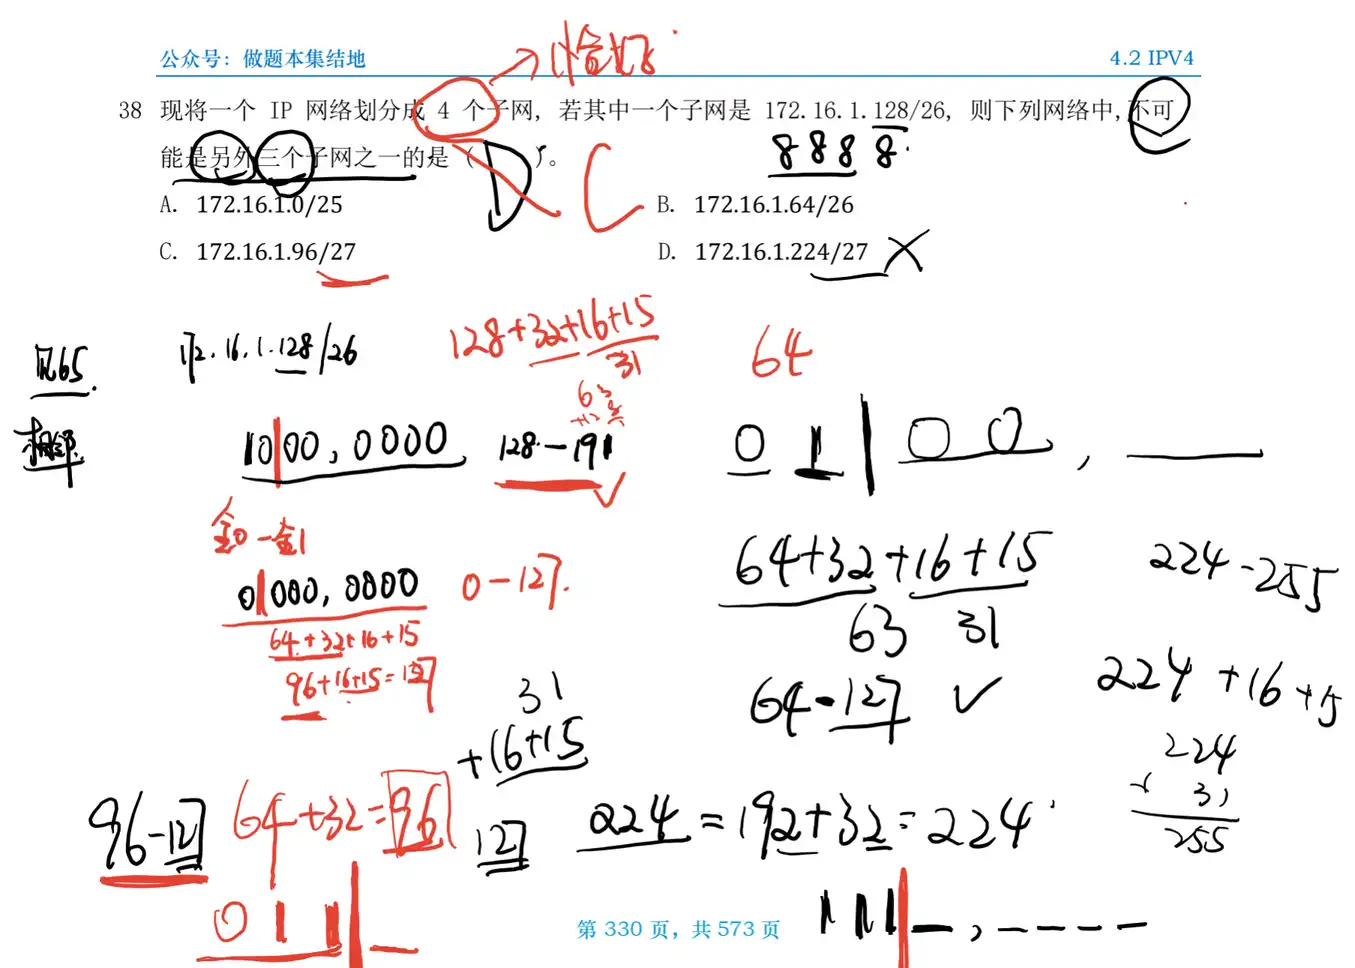 公众号：做题本集结地
4.2 IPV4
恰好
38 现将一个 IP 网络划分成 4 个子网，若其中一个子网是 172.16.1.128/26，则下列网络中，不可
能是另外三个子网之一的是（ D ）。
C
8 8 8 8.
A. 172.16.1.0/25
B. 172.16.1.64/26
C. 172.16.1.96/27
D. 172.16.1.224/27
172.16.1.128/26
128+32+16+15
31
63
64
1000,0000
128-191
0 1 0 0 ,
全0-全1
0000,0000
0-127.
64+32+16+15
96+16+15=127
64+32+16+15
63 31
224-255
31
+16+15
127
64-127
224+16+15
224
+ 31
255
96-127
64+32=96
224=192+32=224
0 1 1
1 1 1 ,
第 330 页，共 573 页